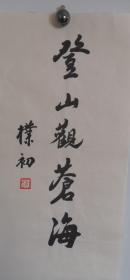 登山觀蒼海
樸初